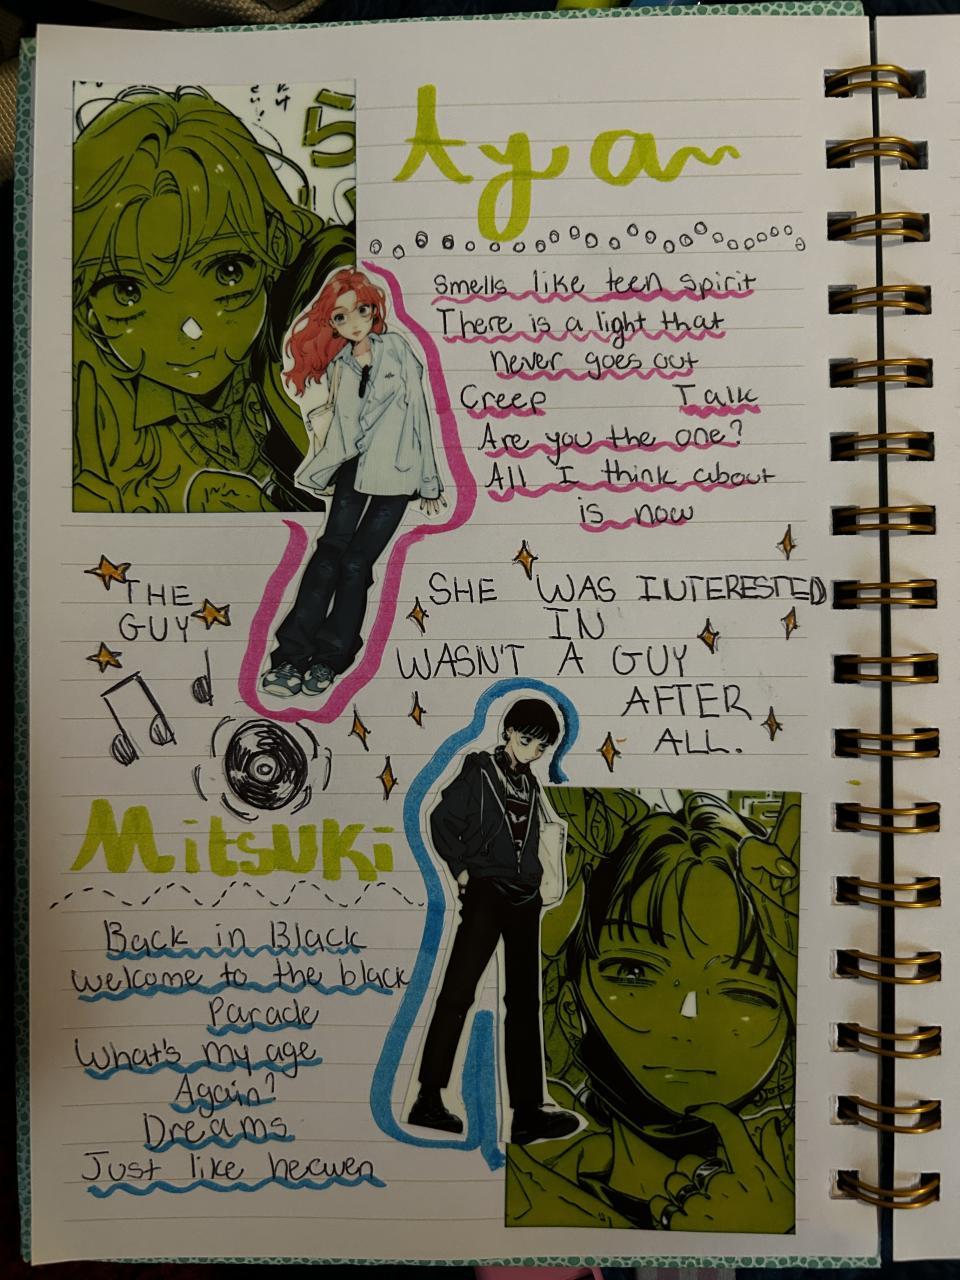 Aya
Smells like teen spirit
There is a light that
never goes out
Creep Talk
Are you the one?
All I think about
is now
THE
GUY
SHE WAS INTERESTED
IN
WASN'T A GUY
AFTER
ALL.
Mitsuki
Back in Black
Welcome to the black
Parade
What's my age
Again?
Dreams
Just like heaven